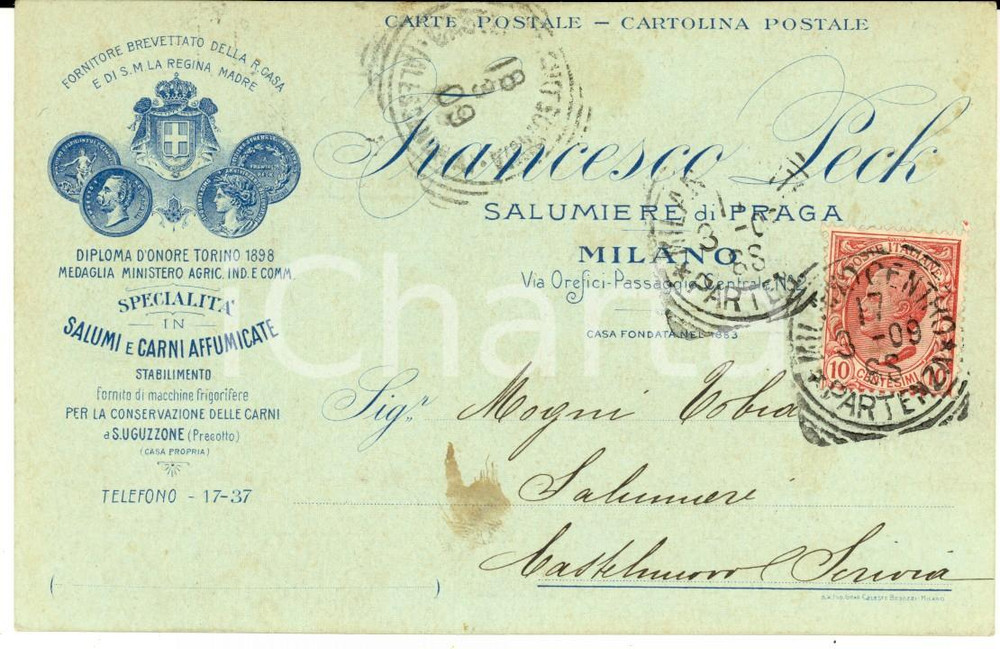 CARTE POSTALE — CARTOLINA POSTALE
FORNITORE BREVETTATO DELLA R. CASA
E DI S.M. LA REGINA MADRE
Francesco Peck
SALUMIERE di PRAGA
MILANO
Via Orefici-Passaggio Centrale N. 2
CASA FONDATA NEL 1883
DIPLOMA D'ONORE TORINO 1898
MEDAGLIA MINISTERO AGRIC. IND. E COMM.
SPECIALITA'
IN
SALUMI E CARNI AFFUMICATE
STABILIMENTO
fornito di macchine frigorifere
PER LA CONSERVAZIONE DELLE CARNI
a S. UGUZZONE (Precotto)
(CASA PROPRIA)
TELEFONO - 17-37
Sigr Mogni Tobia
Salumiere
Castelnuovo Scrivia
18 3 09
MILANO
PARTENZA
POSTE ITALIANE
10 CENTESIMI 10
MILANO CENTRO
17
3 - 09
PARTENZA
iChartu